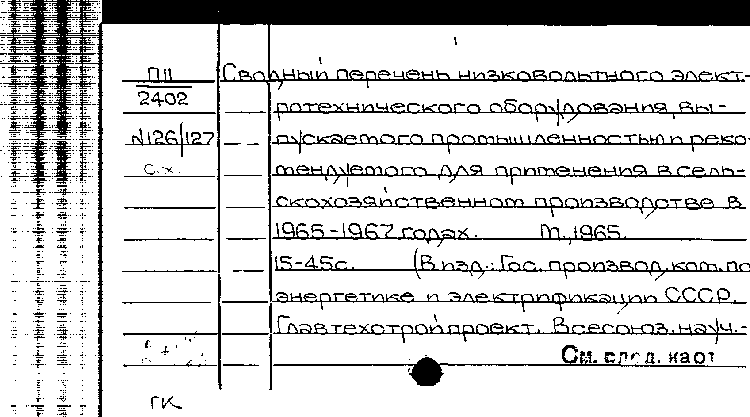 ПII
2402
N126/127
с.х.
Сводный перечень низковольтного элект-
ротехнического оборудования, вы-
пускаемого промышленностью и реко
мендуемого для применения в сель-
скохозяйственном производстве в
1965-1967 годах. М., 1965.
15-45с. (В изд.: Гос. производ. ком. по
энергетике и электрификации СССР.
Главтехстройпроект. Всесоюз. науч.-
См. след. карт
ГК